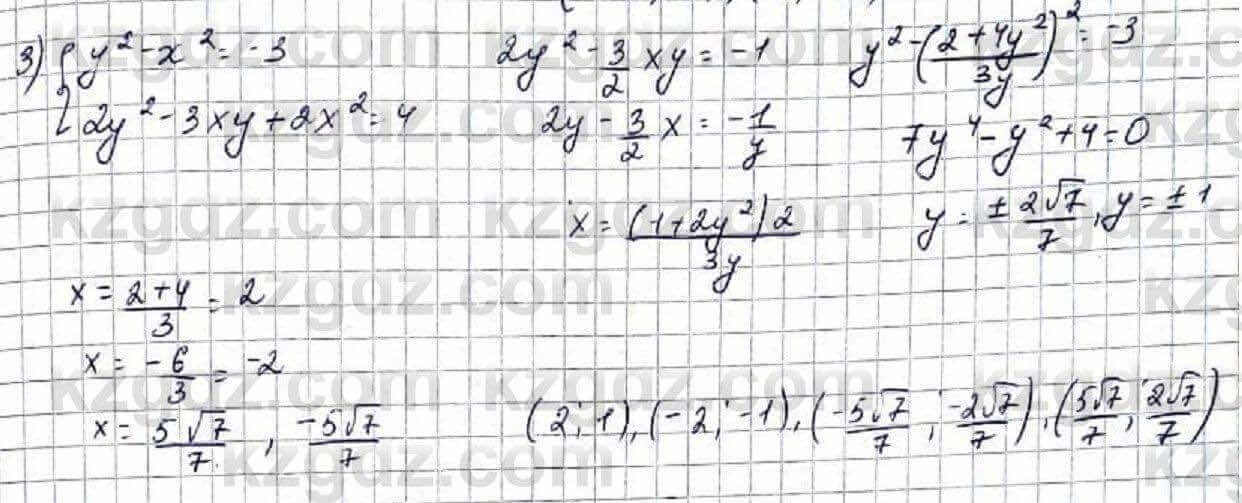 3) { y² - x² = -3
2y² - 3xy + 2x² = 4
2y² - 3/2 xy = -1
2y - 3/2 x = -1/y
x = (1+2y²)2 / 3y
y² - ((2+4y²)/3y)² = -3
7y⁴ - y² + 4 = 0
y = ± 2√7/7, y = ± 1
x = (2+4)/3 = 2
x = -6/3 = -2
x = 5√7/7, -5√7/7
(2; 1), (-2; -1), (-5√7/7; -2√7/7), (5√7/7; 2√7/7)
kzgdz.com